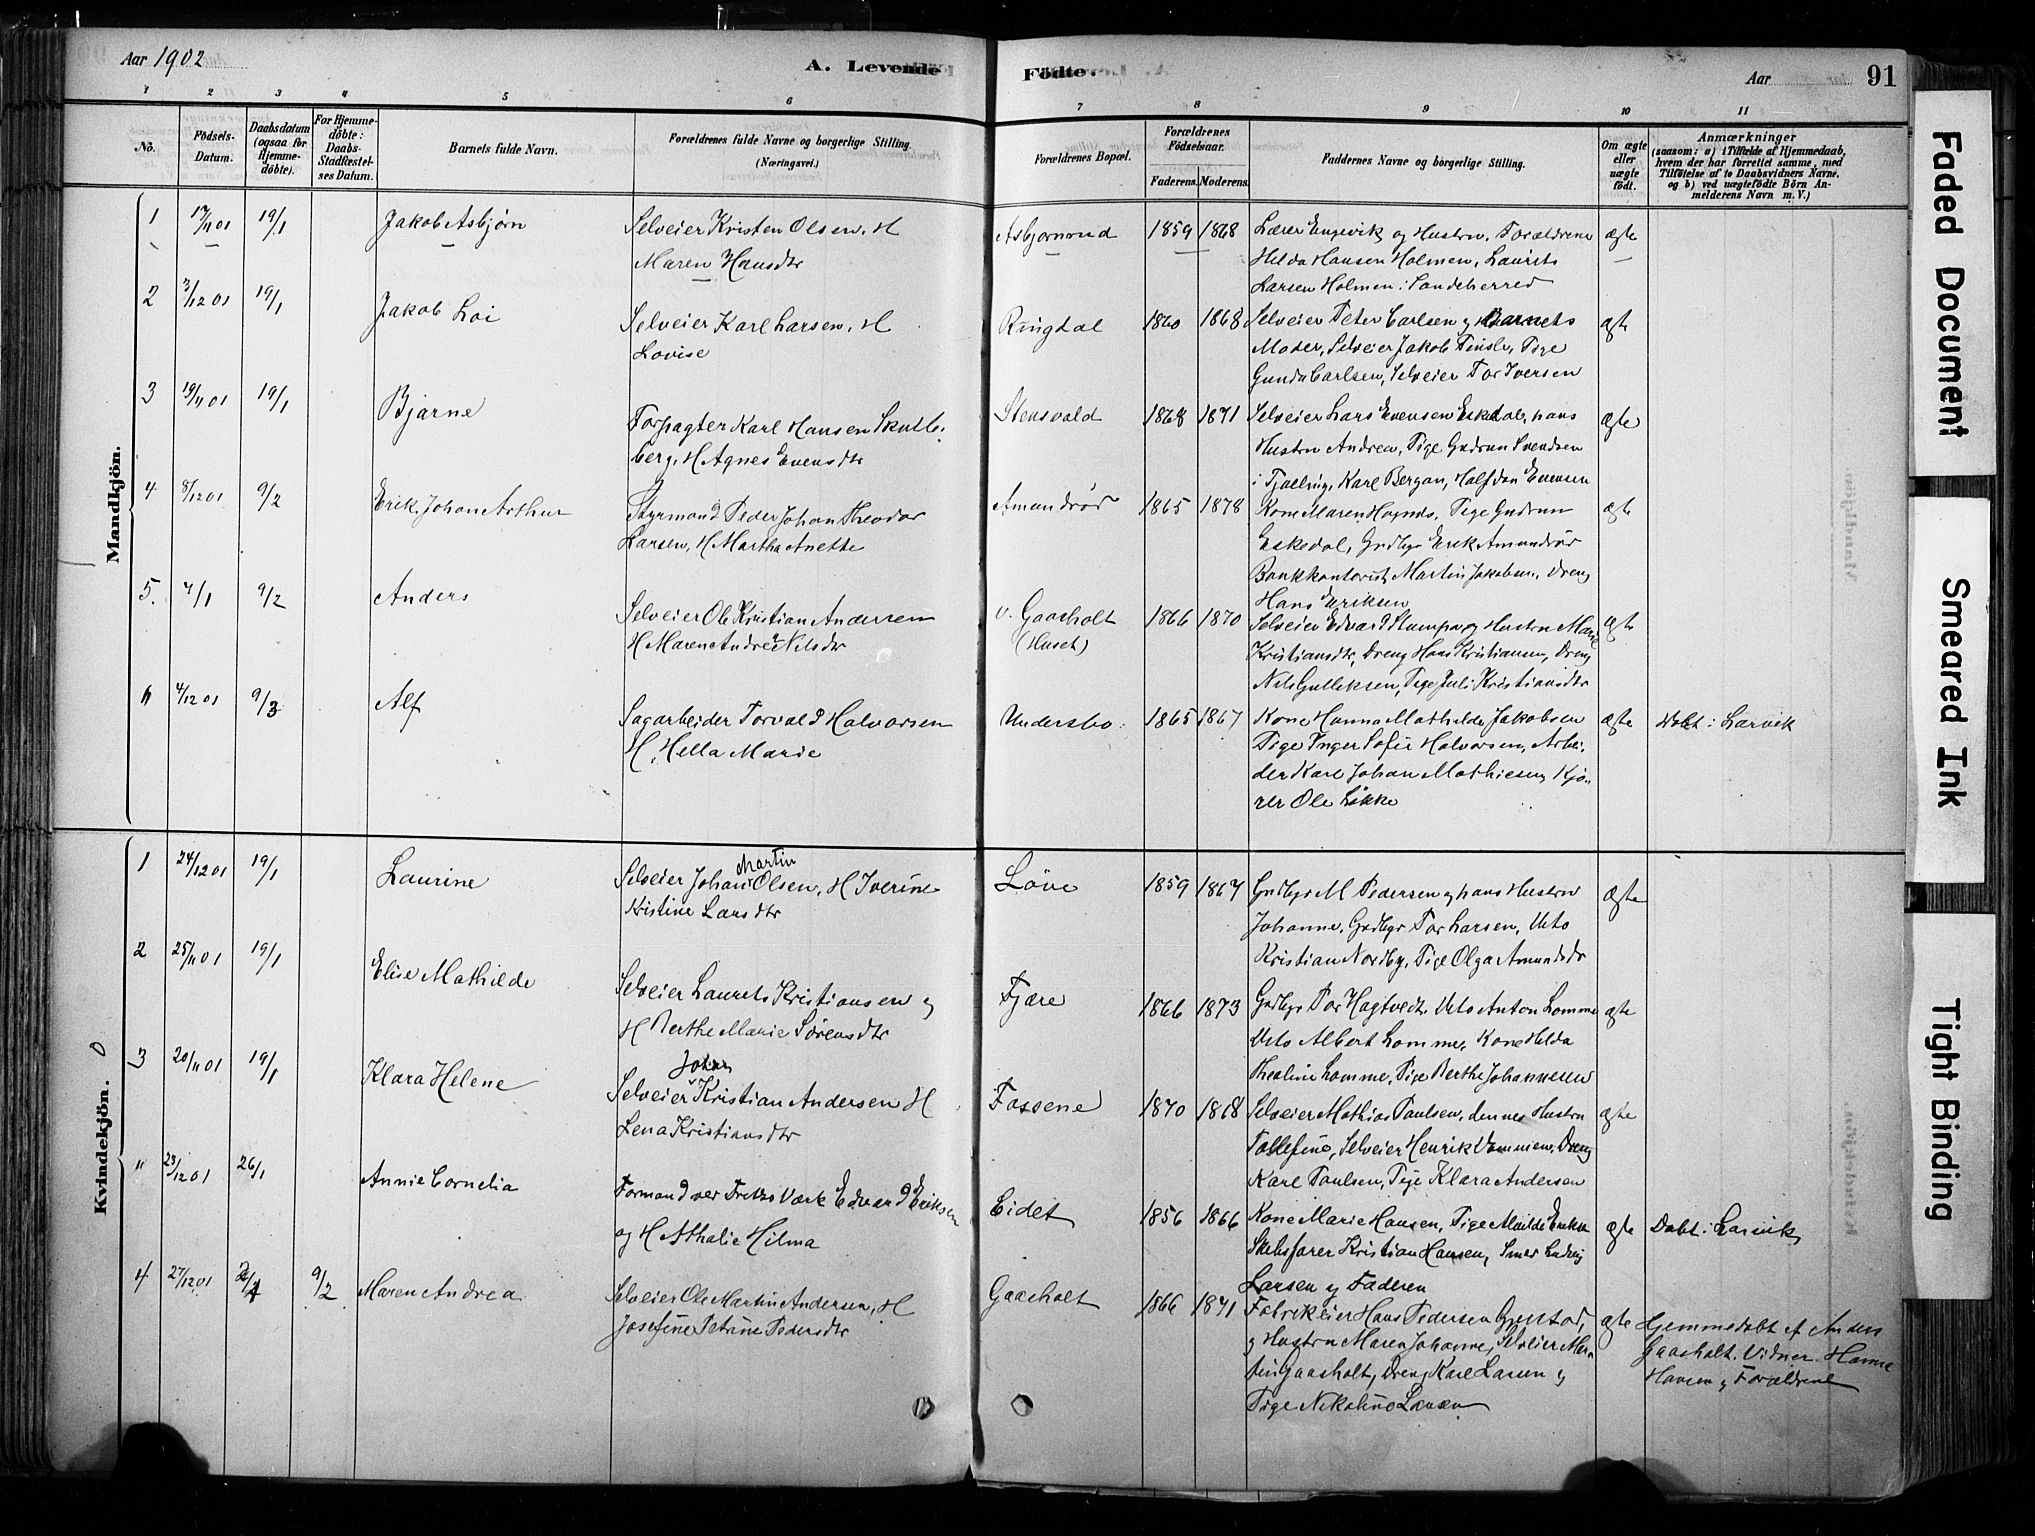 Aar 1902
A. Levende
Födte.
Aar
91
1 2 3 4 5 6 7 8 9 10 11
No.
Födsels-
Datum.
Daabsdatum
(ogsaa for
Hjemme-
döbte).
For Hjemme-
döbte:
Daabs-
Stadfæstel-
ses Datum.
Barnets fulde Navn.
Forældrenes fulde Navne og borgerlige Stilling.
(Næringsvei.)
Forældrenes Bopæl.
Forældrenes
Födselsaar.
Faderens. Moderens.
Faddernes Navne og borgerlige Stilling.
Om ægte
eller
uægte
födt.
Anmærkninger
(saasom: a) i Tilfælde af Hjemmedaab,
hvem der har forrettet samme, med
Tilföielse af to Daabsvidners Navne,
og b) ved uægtefödte Börn An-
melderens Navn m. V.)
Mandkjön.
1 17/11 01 19/1 Jakob Asbjørn
Selveier Kristen Olsen, H
Maren Hansdtr
Asbjørnrud 1859 1868
Lærer Engevik og Hustru, Forældrene
Helda Hansen Holmen, Laurits
Larsen Holmen i Sandeherred
ægte
2 3/12 01 19/1 Jakob Loi
Selveier Karl Larsen, H
Lovise
Ringdal 1860 1868
Selveier Peter Carlsen og Barnets
Moder, Selveier Jakob Tinsle, Pige
Gunda Carlsen, Selveier Tor Iversen
ægte
3 19/11 01 19/1 Bjarne
Forpagter Karl Hansen Skutle-
berg, H Agnes Evensdtr
Stensvald 1868 1871
Selveier Lars Evensen Eskedal, hans
Hustru Andrea, Pige Gudrun Svendsen
i Tjølling, Karl Bergan, Halfdan Evensen
ægte
4 8/12 01 9/2 Erik Johan Arthur
Styrmand Peder Johan Theodor
Larsen, H Martha Anette
Amundrød 1865 1878
Kone Maren Hognds, Pige Gudrun
Eskedal, Grdbgr Erik Amundrör
Bankkontorist Martin Jakobsen, Dreng
Hans Eriksen
ægte
5. 7/1 9/2 Anders
Selveier Ole Kristian Andersen
H Maren Andrea Nilsdtr
v. Gaasholt
(Huset)
1866 1870
Selveier Edvard Stumpo og Hustru Maren
Kristiansdtr, Dreng Hans Kristiansen, Dreng
Nils Gulliksen, Pige Juli Kristiansdtr
ægte
" 4/12 01 9/3 Alf
Sagarbeider Torvald Halvorsen
H, Hella Marie
Undersbo 1865 1867
Kone Hanna Mathilde Jakobsen
Pige Inger Sofie Halvorsen, Arbei-
der Karl Johan Mathiesen, Kjö-
rer Ole Løkke
ægte Døbt i Larvik
Kvindekjön.
1 24/12 01 19/1 Laurine
Selveier Johan Martin Olsen, H Iverine
Kristine Larsdtr
Löve 1859 1867
Grdbgr M Pedersen og hans Hustru
Johanne, Grdbgr Tor Larsen, Uto
Kristian Nordby, Pige Olga Amundsdr
ægte
2 25/11 01 19/1 Elise Mathilde
Selveier Laurets Kristiansen og
H Berthe Marie Sørensdtr
Fjære 1866 1873
Grdbgr Tor Hagtvedt, Uto Anton Lomme
Uto Albert Lomme, Kone Helda
Theoline Lomme, Pige Berthe Johannesen
ægte
3 20/11 01 19/1 Klara Helene
Selveier Johan Kristian Andersen H
Lena Kristiansdtr
Fossene 1870 1868
Selveier Mathias Paulsen, dennes Hustru
Tollefine, Selveier Henrik Vommen, Dreng
Karl Paulsen, Pige Klara Andersen
ægte
" 23/12 01 26/1 Annie Cornelia
Formand ved Fritzø Værk Edvard Eriksen
og H Athalie Hilma
Eidet 1856 1866
Kone Marie Hansen, Pige Mailde Eriksen
Skibsfører Kristian Hansen, Smed Ludvig
Larsen og Faderen
ægte Døbt i Larvik
4 27/12 01 9/2 Maren Andrea
Selveier Ole Martin Andersen, H
Josefine Petrine Pedersdtr
Gaasholt 1866 1871
Fabrikeier Hans Pedersen Gjerstad,
og Hustru Maren Johanne, Selveier Mar-
tin Gaasholt, Dreng Karl Larsen og
Pige Nikoline Larsen
ægte
Hjemmedøbt af Anders
Gaasholt. Vidner Hanne
Hansen og Forældrene
Faded Document
Smeared Ink
Tight Binding